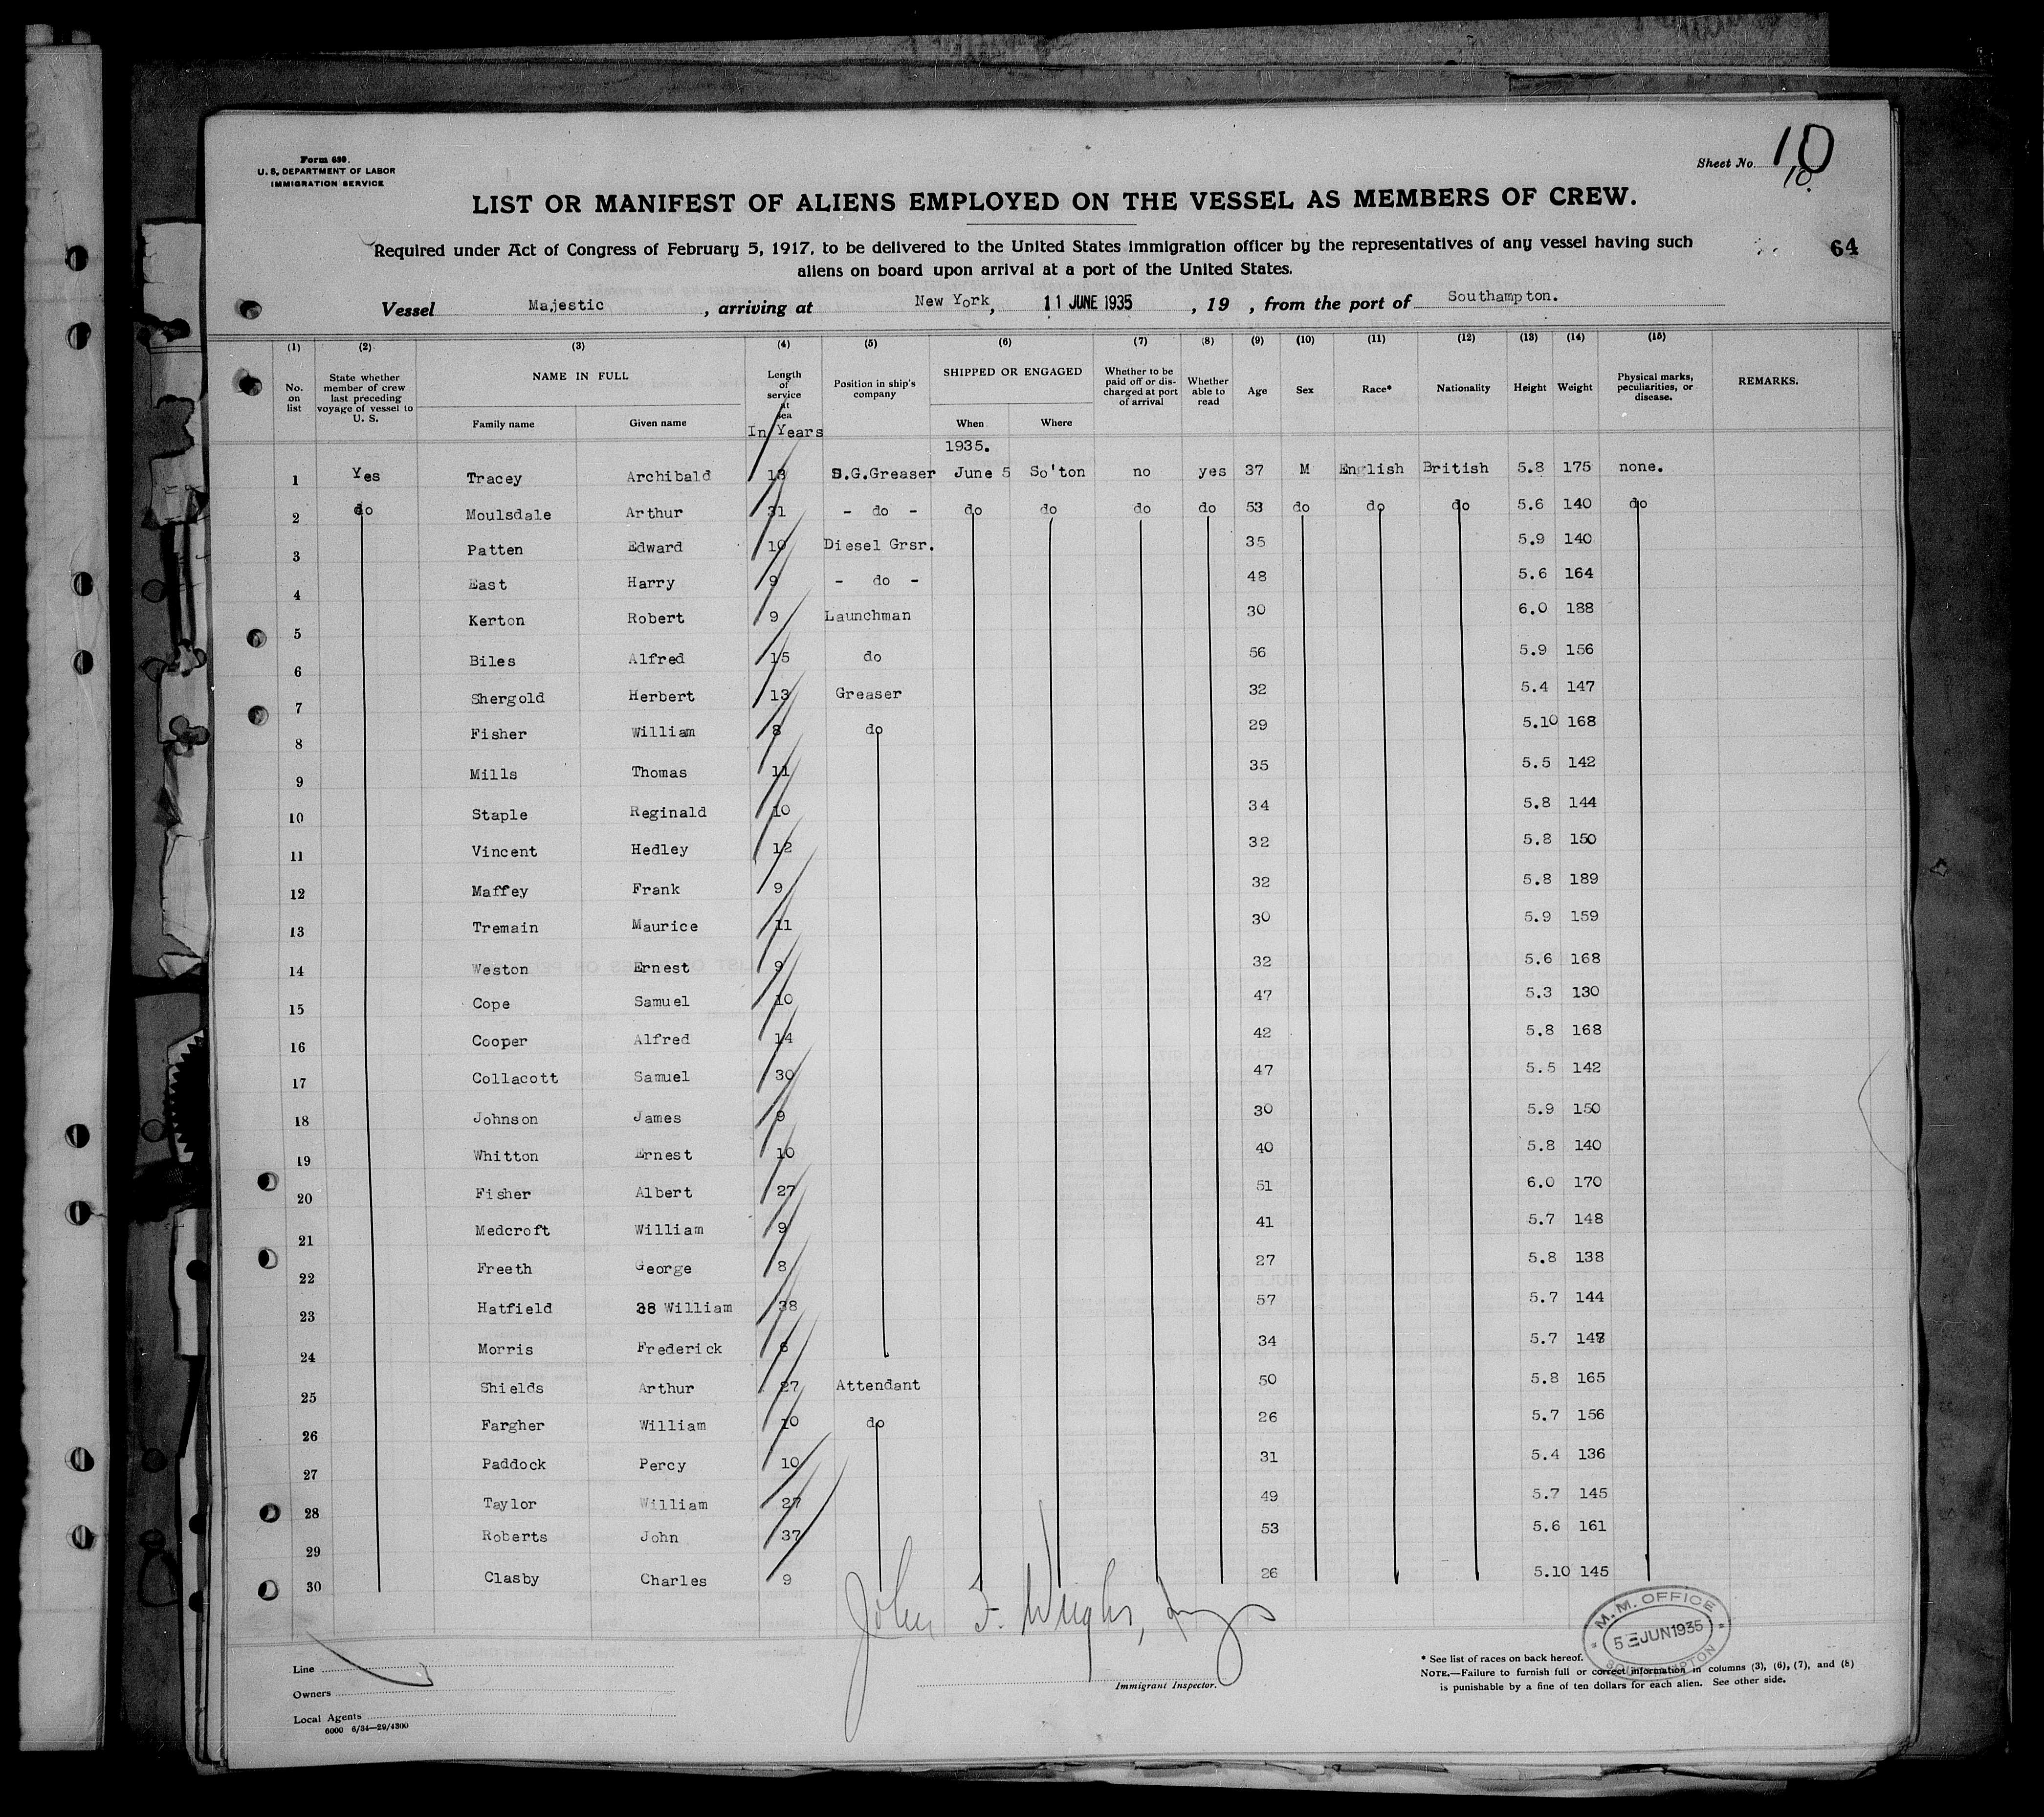 Form 680.
U. S. DEPARTMENT OF LABOR
IMMIGRATION SERVICE
Sheet No. 10
10.
LIST OR MANIFEST OF ALIENS EMPLOYED ON THE VESSEL AS MEMBERS OF CREW.
Required under Act of Congress of February 5, 1917, to be delivered to the United States immigration officer by the representatives of any vessel having such
aliens on board upon arrival at a port of the United States.
64
Vessel Majestic , arriving at New York, 11 JUNE 1935 , 19 , from the port of Southampton.
(1) (2) (3) (4) (5) (6) (7) (8) (9) (10) (11) (12) (13) (14) (15)
No. on list State whether member of crew last preceding voyage of vessel to U. S. NAME IN FULL Family name Given name Length of service at sea In Years Position in ship's company SHIPPED OR ENGAGED When Where Whether to be paid off or discharged at port of arrival Whether able to read Age Sex Race* Nationality Height Weight Physical marks, peculiarities, or disease. REMARKS.
1935.
1 Yes Tracey Archibald 13 S.G.Greaser June 5 So'ton no yes 37 M English British 5.8 175 none.
2 do Moulsdale Arthur 31 - do - do do do do 53 do do do 5.6 140 do
3 Patten Edward 10 Diesel Grsr. 35 5.9 140
4 East Harry 9 - do - 48 5.6 164
5 Kerton Robert 9 Launchman 30 6.0 188
6 Biles Alfred 15 do 56 5.9 156
7 Shergold Herbert 13 Greaser 32 5.4 147
8 Fisher William 8 do 29 5.10 168
9 Mills Thomas 11 35 5.5 142
10 Staple Reginald 10 34 5.8 144
11 Vincent Hedley 12 32 5.8 150
12 Maffey Frank 9 32 5.8 189
13 Tremain Maurice 11 30 5.9 159
14 Weston Ernest 9 32 5.6 168
15 Cope Samuel 10 47 5.3 130
16 Cooper Alfred 14 42 5.8 168
17 Collacott Samuel 30 47 5.5 142
18 Johnson James 9 30 5.9 150
19 Whitton Ernest 10 40 5.8 140
20 Fisher Albert 27 51 6.0 170
21 Medcroft William 9 41 5.7 148
22 Freeth George 8 27 5.8 138
23 Hatfield 38 William 38 57 5.7 144
24 Morris Frederick 6 34 5.7
25 Shields Arthur 27 Attendant 50 5.8 165
26 Fargher William 10 do 26 5.7 156
27 Paddock Percy 10 31 5.4 136
28 Taylor William 27 49 5.7 145
29 Roberts John 37 53 5.6 161
30 Clasby Charles 9 26 5.10 145
John F.
M. M. OFFICE
5 JUN 1935
SOUTHAMPTON
Line
Owners
Local Agents
6000 6/34—29/4300
Immigrant Inspector.
* See list of races on back hereof.
NOTE.—Failure to furnish full or correct information in columns (3), (6), (7), and (8)
is punishable by a fine of ten dollars for each alien. See other side.